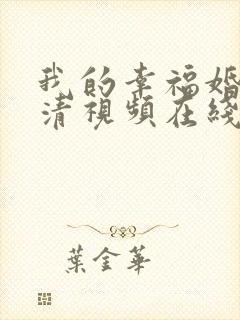 我的幸福婚
清視頻在綫
葉金華